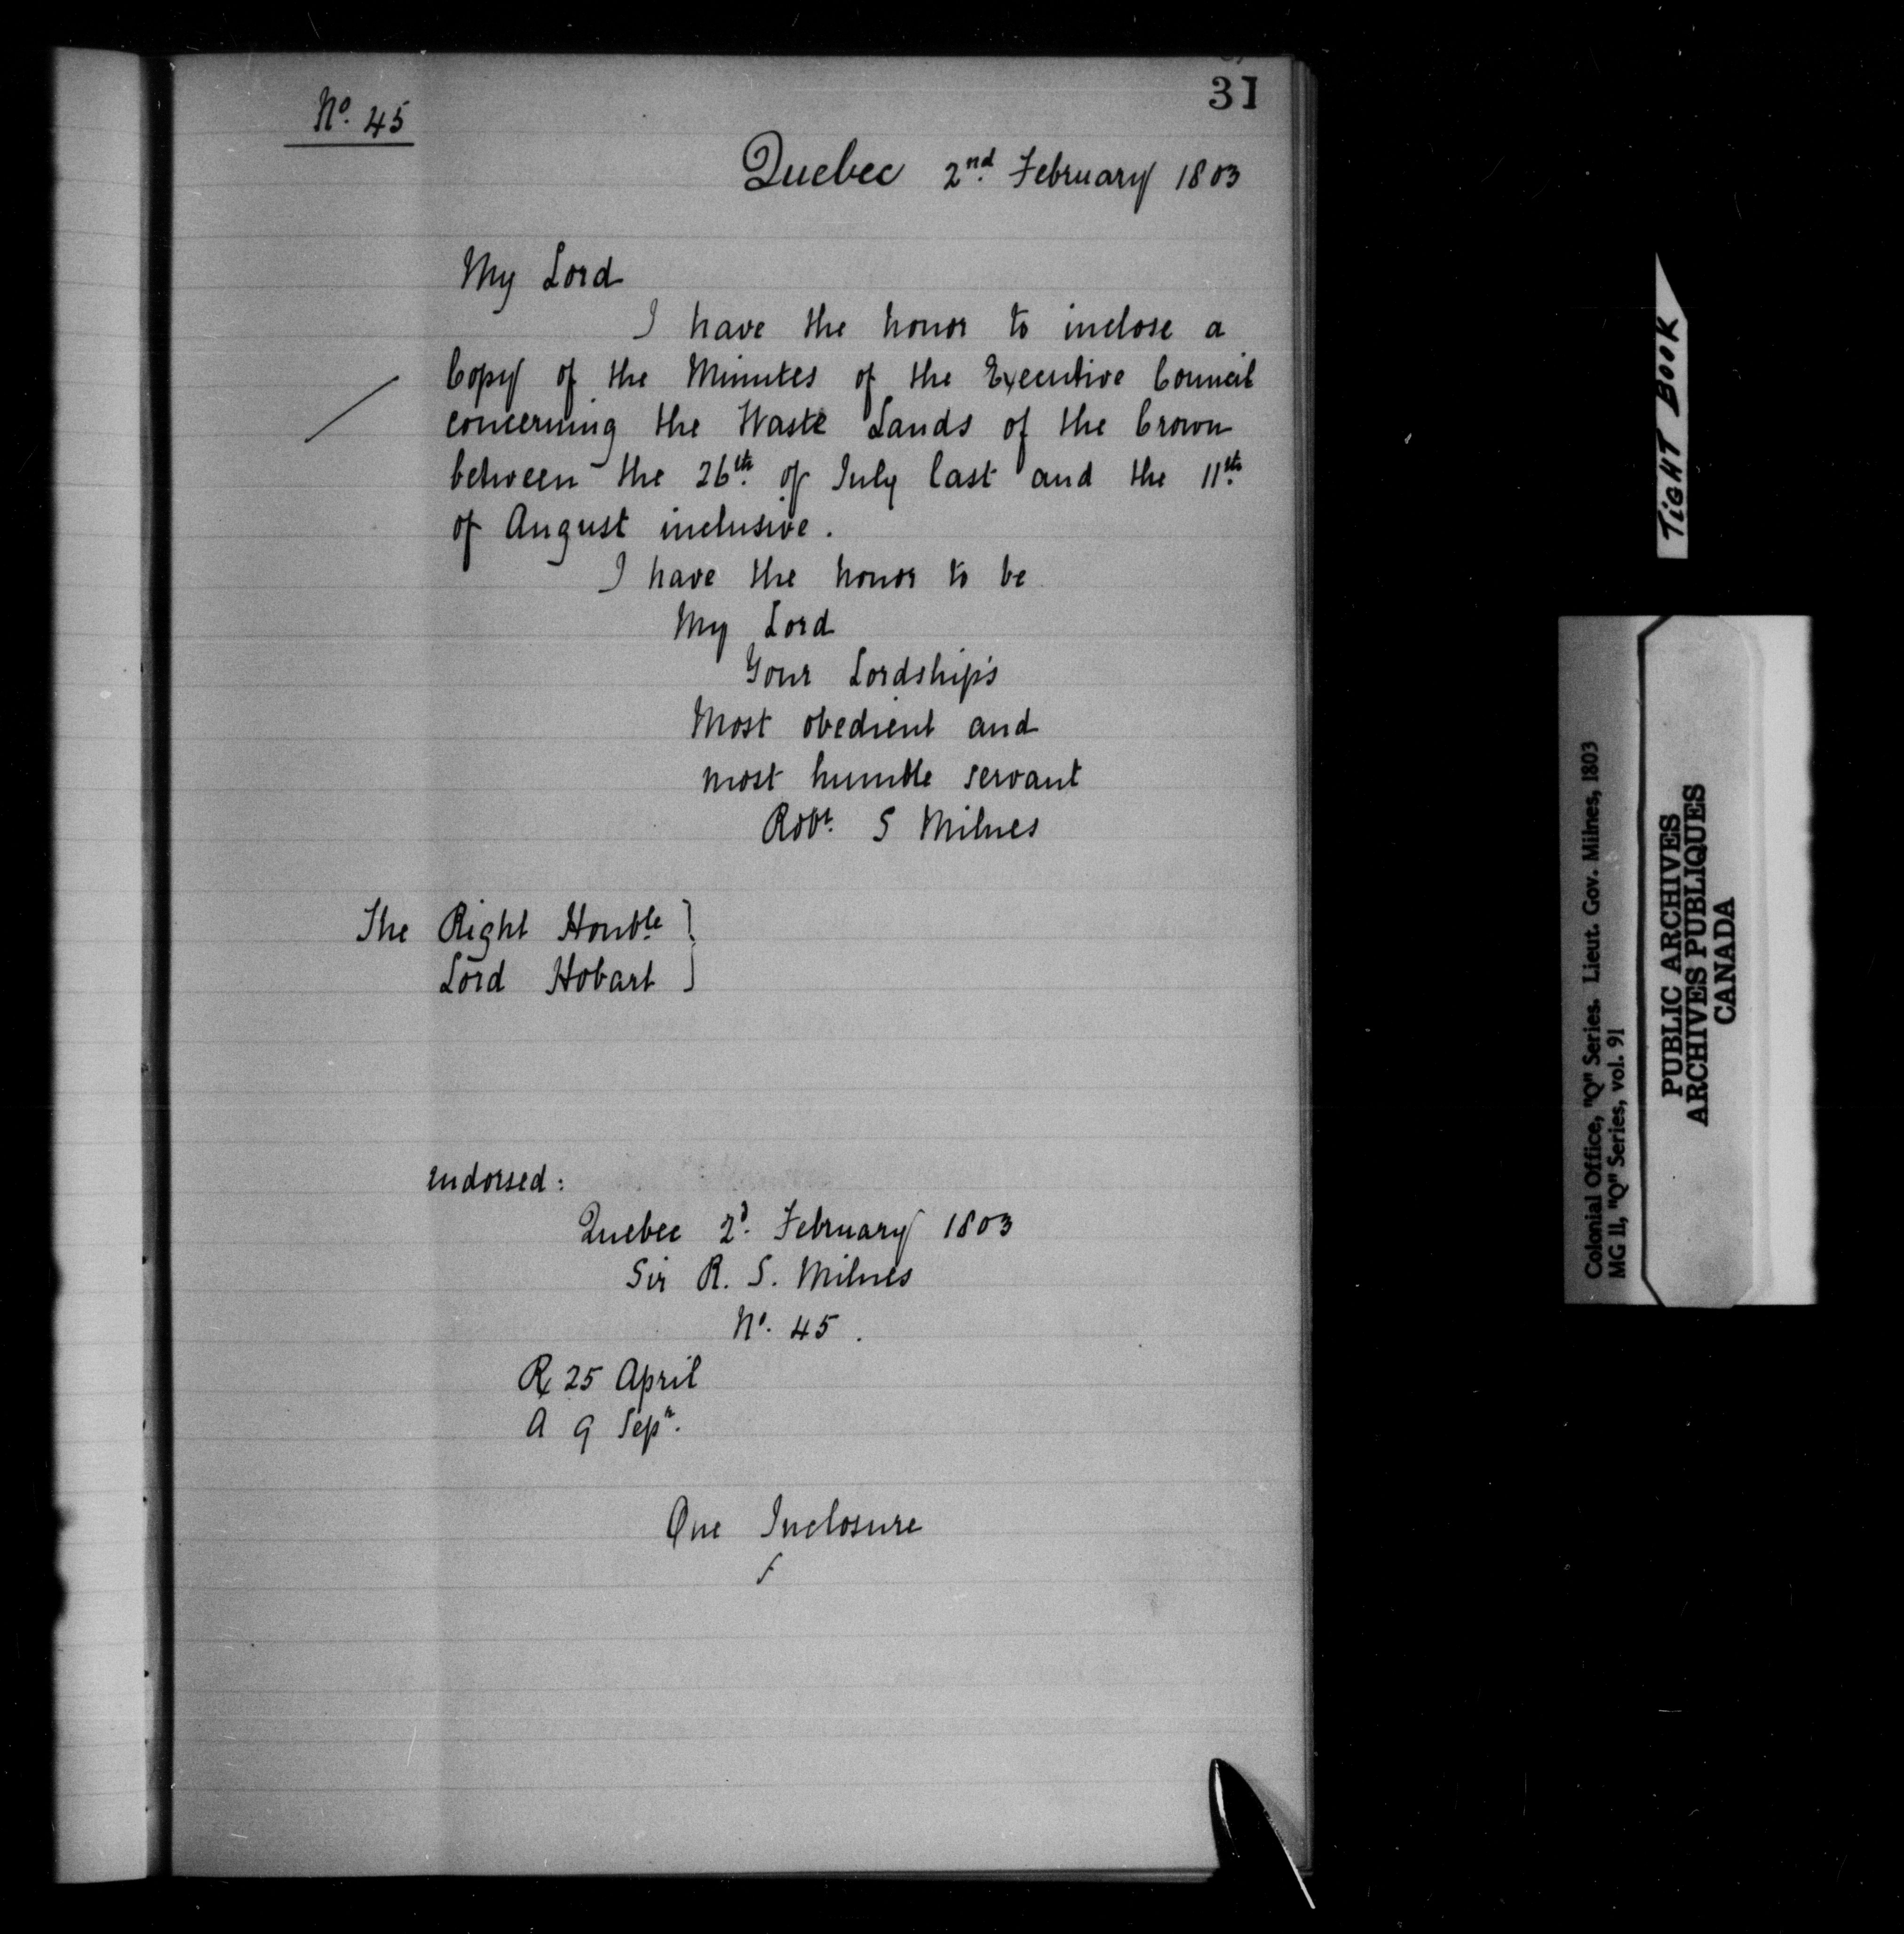 31
No. 45
Quebec 2nd. February 1803
My Lord
I have the honor to inclose a
Copy of the Minutes of the Executive Council
concerning the Waste Lands of the Crown
between the 26th. of July last and the 11th.
of August inclusive.
I have the honor to be
My Lord
Your Lordship's
Most obedient and
most humble servant
Robt. S Milnes
The Right Honble.
Lord Hobart
Endorsed:
Quebec 2d. February 1803
Sir R. S. Milnes
No. 45.
R 25 April
A 9 Sepr.
One Inclosure
TIGHT BOOK
Colonial Office, "Q" Series. Lieut. Gov. Milnes, 1803
MG 11, "Q" Series, vol. 91
PUBLIC ARCHIVES
ARCHIVES PUBLIQUES
CANADA